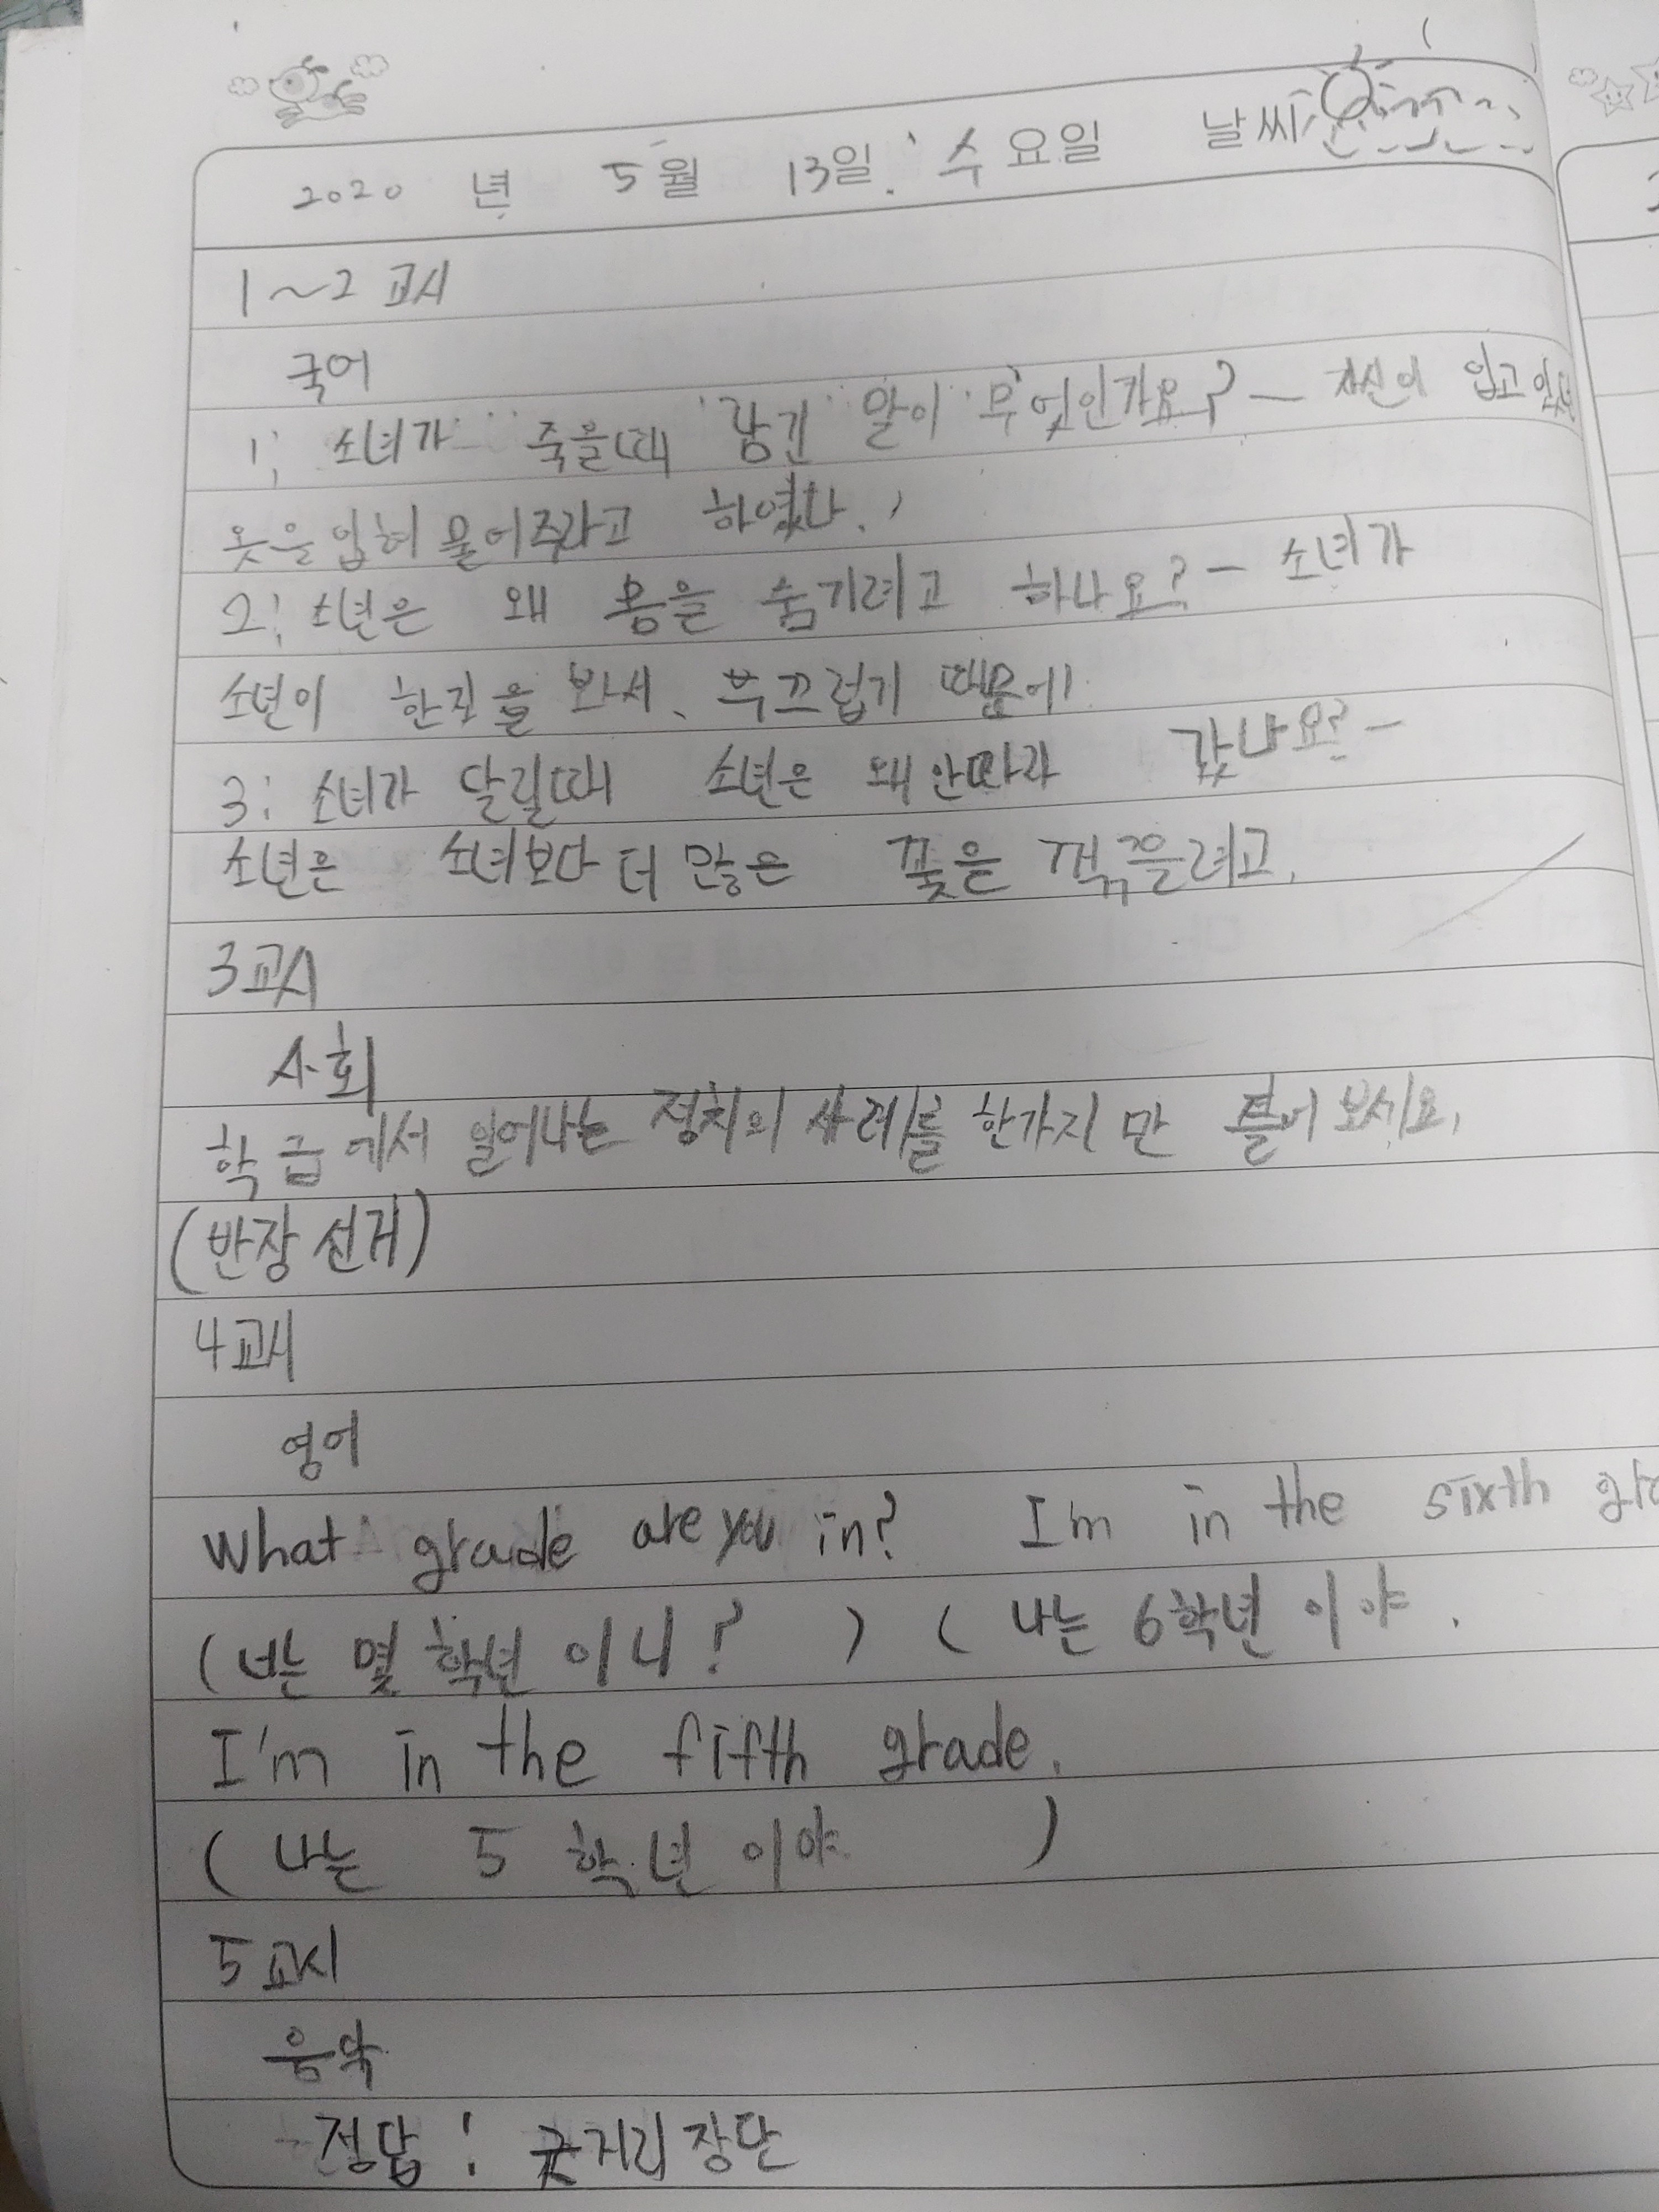 2020 년 5월 13일 수요일 날씨
1~2 교시
국어
1: 소녀가 죽을때 남긴 말이 무엇인가요? - 자신이 입고
옷을입혀 묻어주라고 하였다.
2: 소년은 왜 몸을 숨기려고 하나요? - 소녀가
소년이 한짓을 봐서, 부끄럽기 때문에
3: 소녀가 달릴때 소년은 왜 안따라 갔나요? -
소년은 소녀보다 더 많은 꽃을 꺽끌려고.
3교시
사회
학급에서 일어나는 정치의 사례를 한가지만 들어 보세요.
(반장 선거)
4교시
영어
What grade are you in? I'm in the sixth gra
(너는 몇 학년 이니? ) ( 나는 6학년 이야.
I'm in the fifth grade.
( 나는 5 학년 이야 )
5교시
음악
정답: 굿거리장단